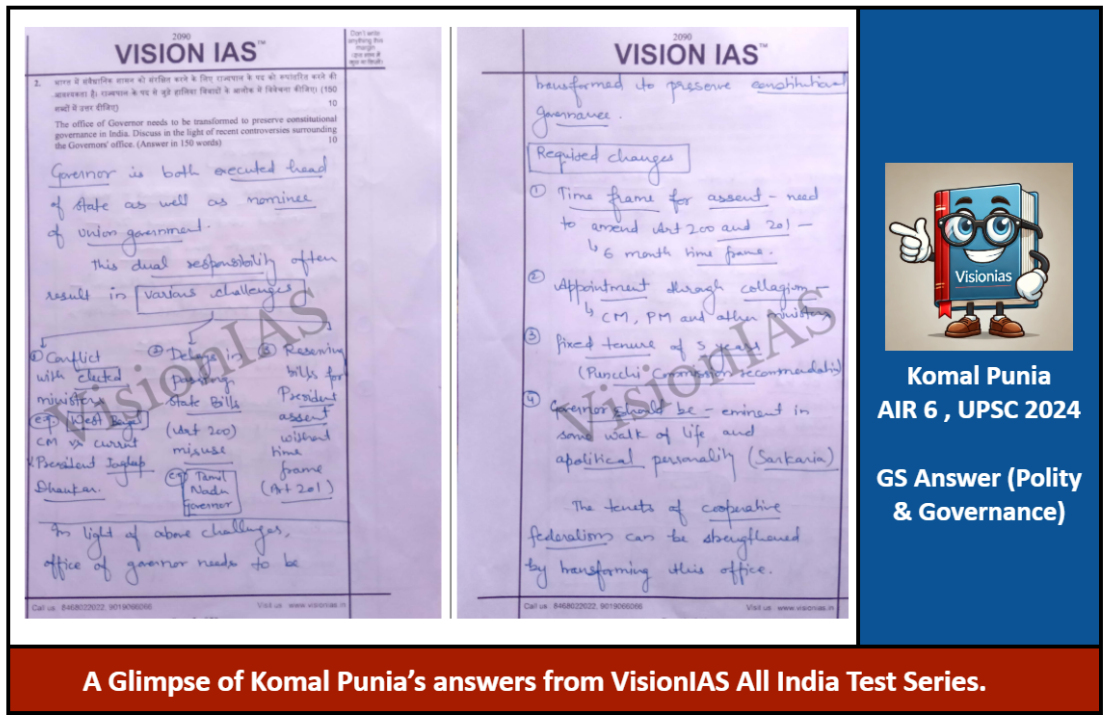 2090
VISION IAS™
Don't write
anything this
margin
2.
भारत में संवैधानिक शासन को संरक्षित करने के लिए राज्यपाल के पद को रूपांतरित करने की
आवश्यकता है। राज्यपाल के पद से जुड़े हालिया विवादों के आलोक में विवेचना कीजिए। (150
शब्दों में उत्तर दीजिए)
10
The office of Governor needs to be transformed to preserve constitutional
governance in India. Discuss in the light of recent controversies surrounding
the Governors' office. (Answer in 150 words)
10
Governor is both executed head
of state as well as nominee
of Union government.
This dual responsibility often
result in various challenges
① Conflict
with elected
ministers
e.g. West Bengal
CM vs current
President Jagdeep
Dhankar.
② Delays in
passing
State Bills
(Art 200)
misuse
e.g. Tamil
Nadu
Governor
③ Reserving
bills for
President
assent
without
time
frame
(Art 201)
In light of above challenges,
office of governor needs to be
Call us : 8468022022, 9019066066
Visit us : www.visionias.in
VisionIAS
2090
VISION IAS™
transformed to preserve constitutional
governance.
Required changes
① Time frame for assent - need
to amend Art 200 and 201 -
↳ 6 month time frame.
② Appointment through collegium -
↳ CM, PM and other ministers
③ fixed tenure of 5 years
(Puncchi Commission recommendation)
④ Governor should be - eminent in
some walk of life and
apolitical personality (Sarkaria)
The tenets of cooperative
federalism can be strengthened
by transforming this office.
Call us : 8468022022, 9019066066
Visit us : www.visionias.in
VisionIAS
Visionias
Komal Punia
AIR 6 , UPSC 2024
GS Answer (Polity
& Governance)
A Glimpse of Komal Punia's answers from VisionIAS All India Test Series.